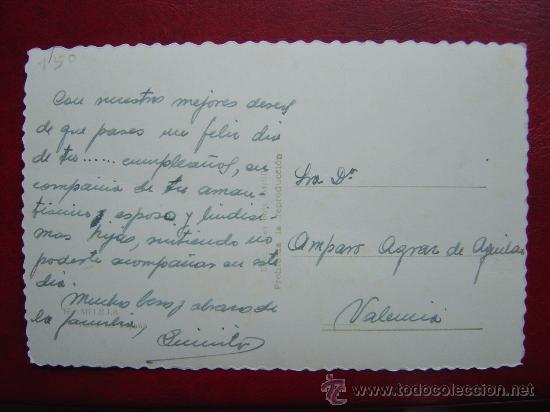 1/50
Con nuestros mejores deseos
de que pases un feliz dia
de tu...... cumpleaños, en
compañia de tu aman-
tisimo esposo y lindisi-
mas hijas, sintiendo no
poderte acompañar en este
dia.
Muchos besos y abrazos de
la familia,
MELILLA
Prohibida la reproducción
Sra Dª
Amparo Agrar de Aguilar
Valencia
todocoleccion
www.todocoleccion.net